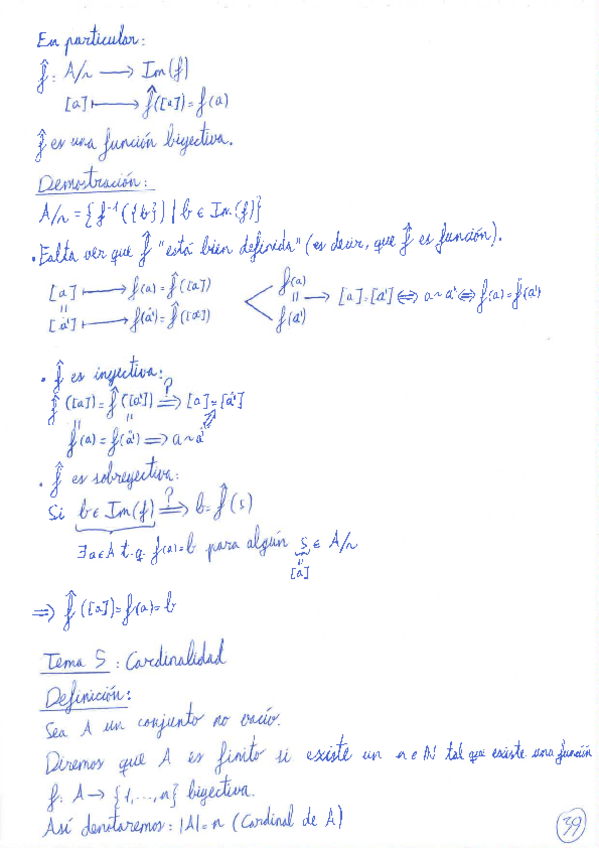 En particular:
f̂: A/~ ⟶ Im(f)
[a] ⟼ f̂([a]) = f(a)
f̂ es una función biyectiva.
Demostración:
A/~ = {f⁻¹({b}) | b ∈ Im(f)}
· Falta ver que f̂ "está bien definida" (es decir, que f̂ es función).
[a] ⟼ f(a) = f̂([a])
=
[a'] ⟼ f(a') = f̂([a'])
f(a) = f(a') ⟶ [a] = [a'] ⟺ a ~ a' ⟺ f(a) = f(a')
· f̂ es inyectiva:
f̂([a]) = f̂([a']) ?⟹ [a] = [a']
f(a) = f(a') ⟹ a ~ a'
· f̂ es sobreyectiva:
Si b ∈ Im(f) ?⟹ b = f̂(s)
∃a∈A t.q. f(a) = b para algún s ∈ A/~
=
[a]
⟹ f̂([a]) = f(a) = b
Tema 5: Cardinalidad
Definición:
Sea A un conjunto no vacío.
Diremos que A es finito si existe un n ∈ ℕ tal que existe una función
f: A → {1, ..., n} biyectiva.
Así denotaremos: |A| = n (Cardinal de A)
39